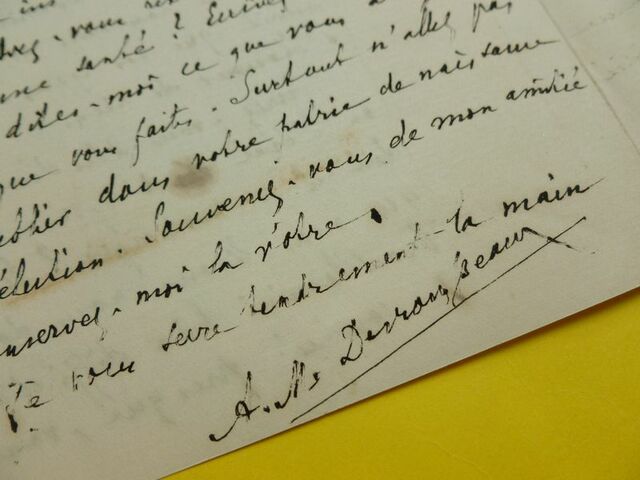 vous
santé ? Écrivez
dites-moi ce que vous
que vous faites. Surtout n'allez pas
oublier dans votre patrie de naissance
d'élection. Souvenez-vous de mon amitié
conservez-moi la vôtre.
Je vous serre tendrement la main
A. M.